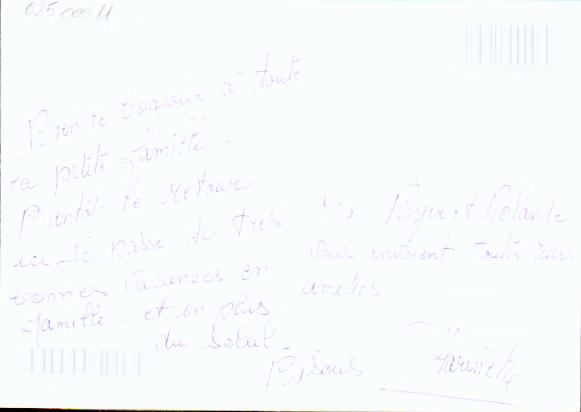 025 000 11
Bien le bonjour à toute
la petite famille.
Bientôt le retour
ici je passe de très
bonnes vacances en
famille. et en plus
du soleil.
Ps, Roger et Rolande
vous envoient toutes leurs
amitiés
Bisous Marinette